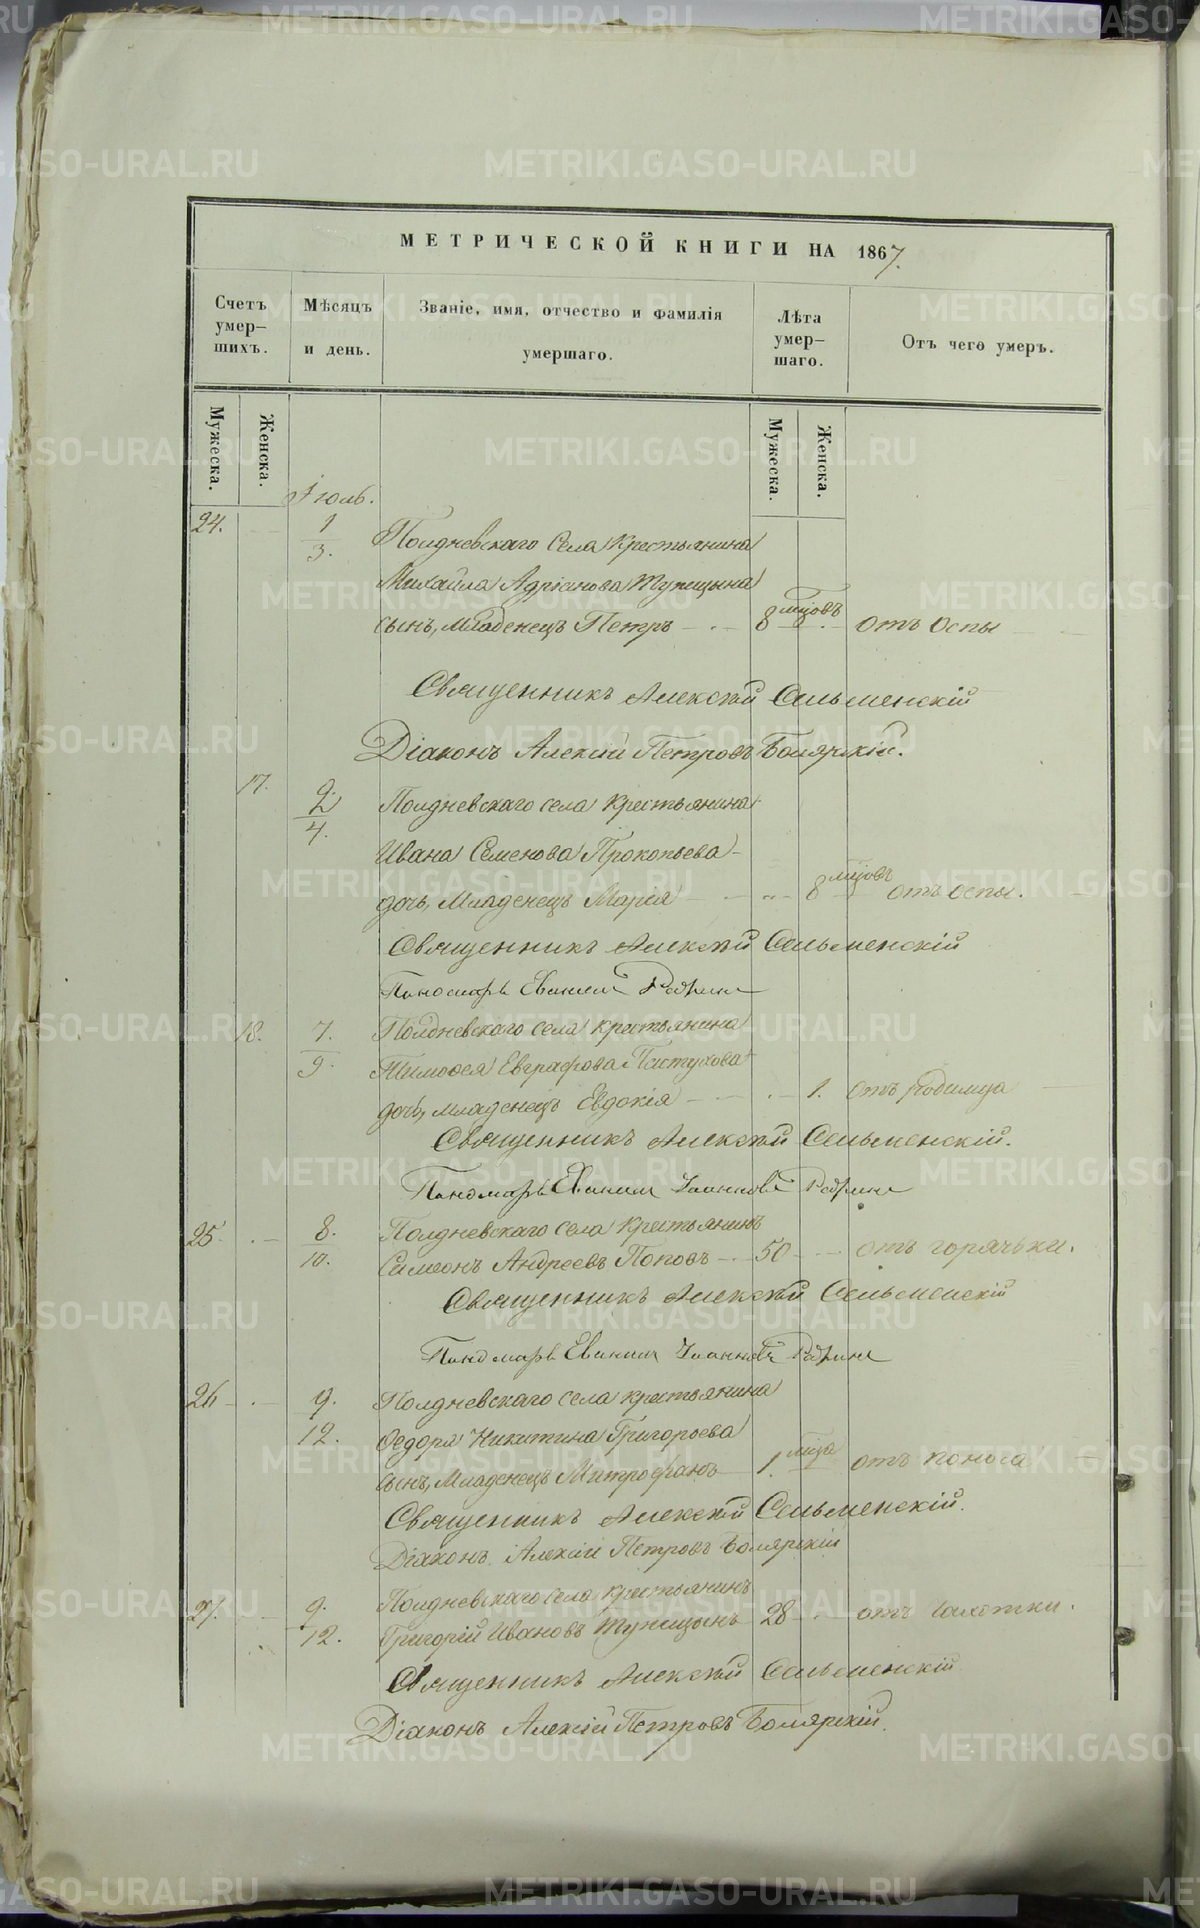 МЕТРИЧЕСКОЙ КНИГИ НА 1867.
Счетъ умер–шихъ.
Мѣсяцъ и день.
Званіе, имя, отчество и фамилія умершаго.
Лѣта умер–шаго.
Отъ чего умеръ.
Мужеска.
Женска.
Мужеска.
Женска.
Іюль.
24. 1 Полдневскаго Села Крестьянина
3. Михайла Адріанова Тупицына
сынъ, Младенецъ Петръ 8 мцовъ отъ Оспы
Священникъ Алексѣй Сельменскій
Діаконъ Алексій Петровъ Боярскій.
17. 2 Полдневскаго села Крестьянина
4. Ивана Семенова Прокопьева
дочь, Младенецъ Марія „ 8 мцовъ отъ оспы.
Священникъ Алексѣй Сельменскій
Пономарь Евѳимій
18. 7. Полдневскаго села крестьянина
9. Тимоѳея Евграфова Пастухова
дочь, младенецъ Евдокія 1. отъ родимца
Священникъ Алексѣй Сельменскій.
Пономарь Евѳимій Іоанновъ
25 8. Полдневскаго села Крестьянинъ
10. Симеонъ Андреевъ Поповъ 50 отъ горячьки.
Священникъ Алексѣй Сельменскій
Пономарь Евѳимій Іоанновъ
26 9. Полдневскаго села крестьянина
12. Ѳедора Никитина Григорьева
сынъ, Младенецъ Митрофанъ 1. мца отъ поноса
Священникъ Алексѣй Сельменскій.
Діаконъ Алексій Петровъ Боярскій
27. 9. Полдневскаго села крестьянинъ
12. Григорій Ивановъ Тупицынъ 28 отъ Чахотки.
Священникъ Алексѣй Сельменскій
Діаконъ Алексій Петровъ Боярскій.
METRIKI.GASO-URAL.RU